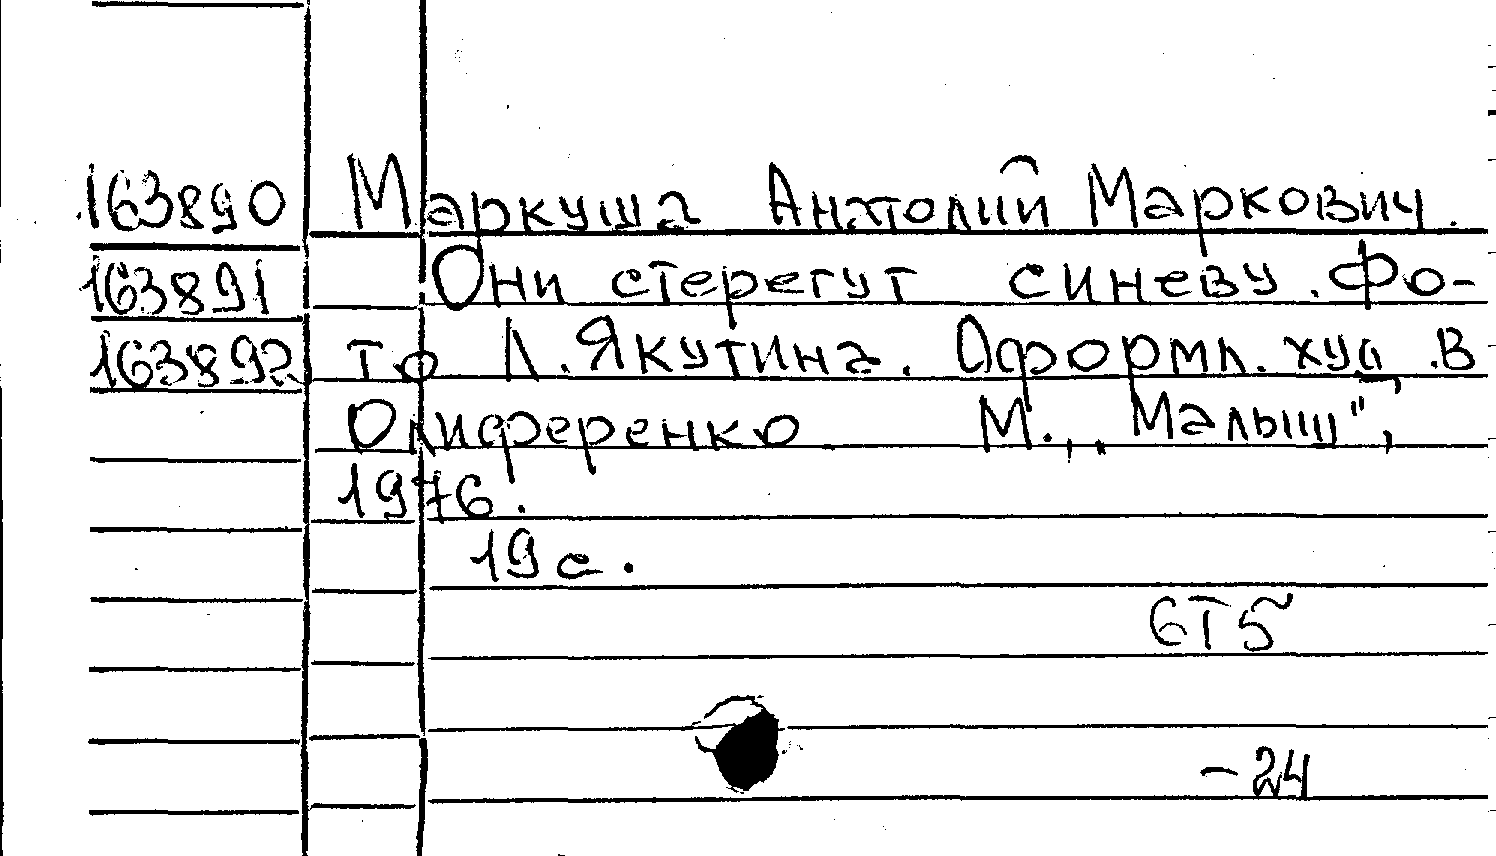 163890 Маркуша Анатолий Маркович.
163891 Они стерегут синеву. Фо-
163892 то Л. Якутина. Оформл. худ. В
Олиференко М., „Малыш",
1976.
19 с.
6Т5
-24